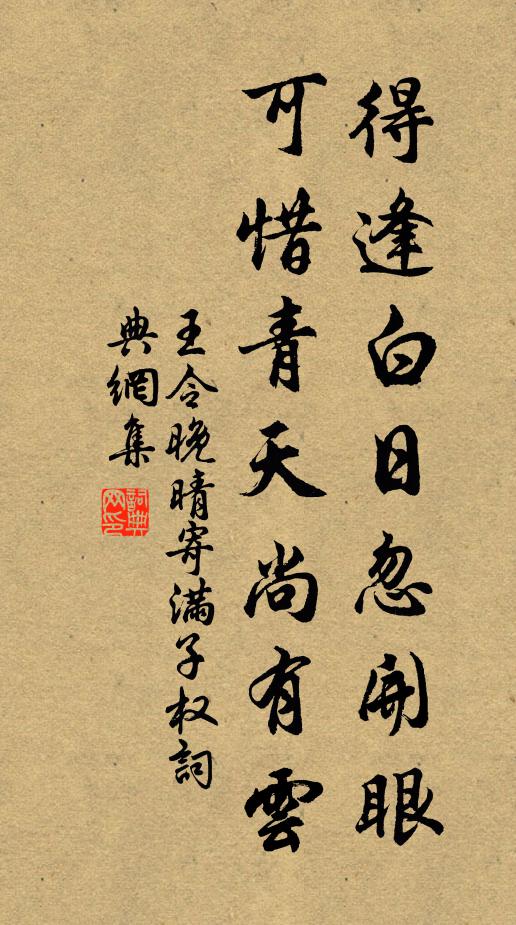 得逢白日忽開眼
可惜青天尚有雲
王令晚晴寄滿子权詞
典網集
詞典網印